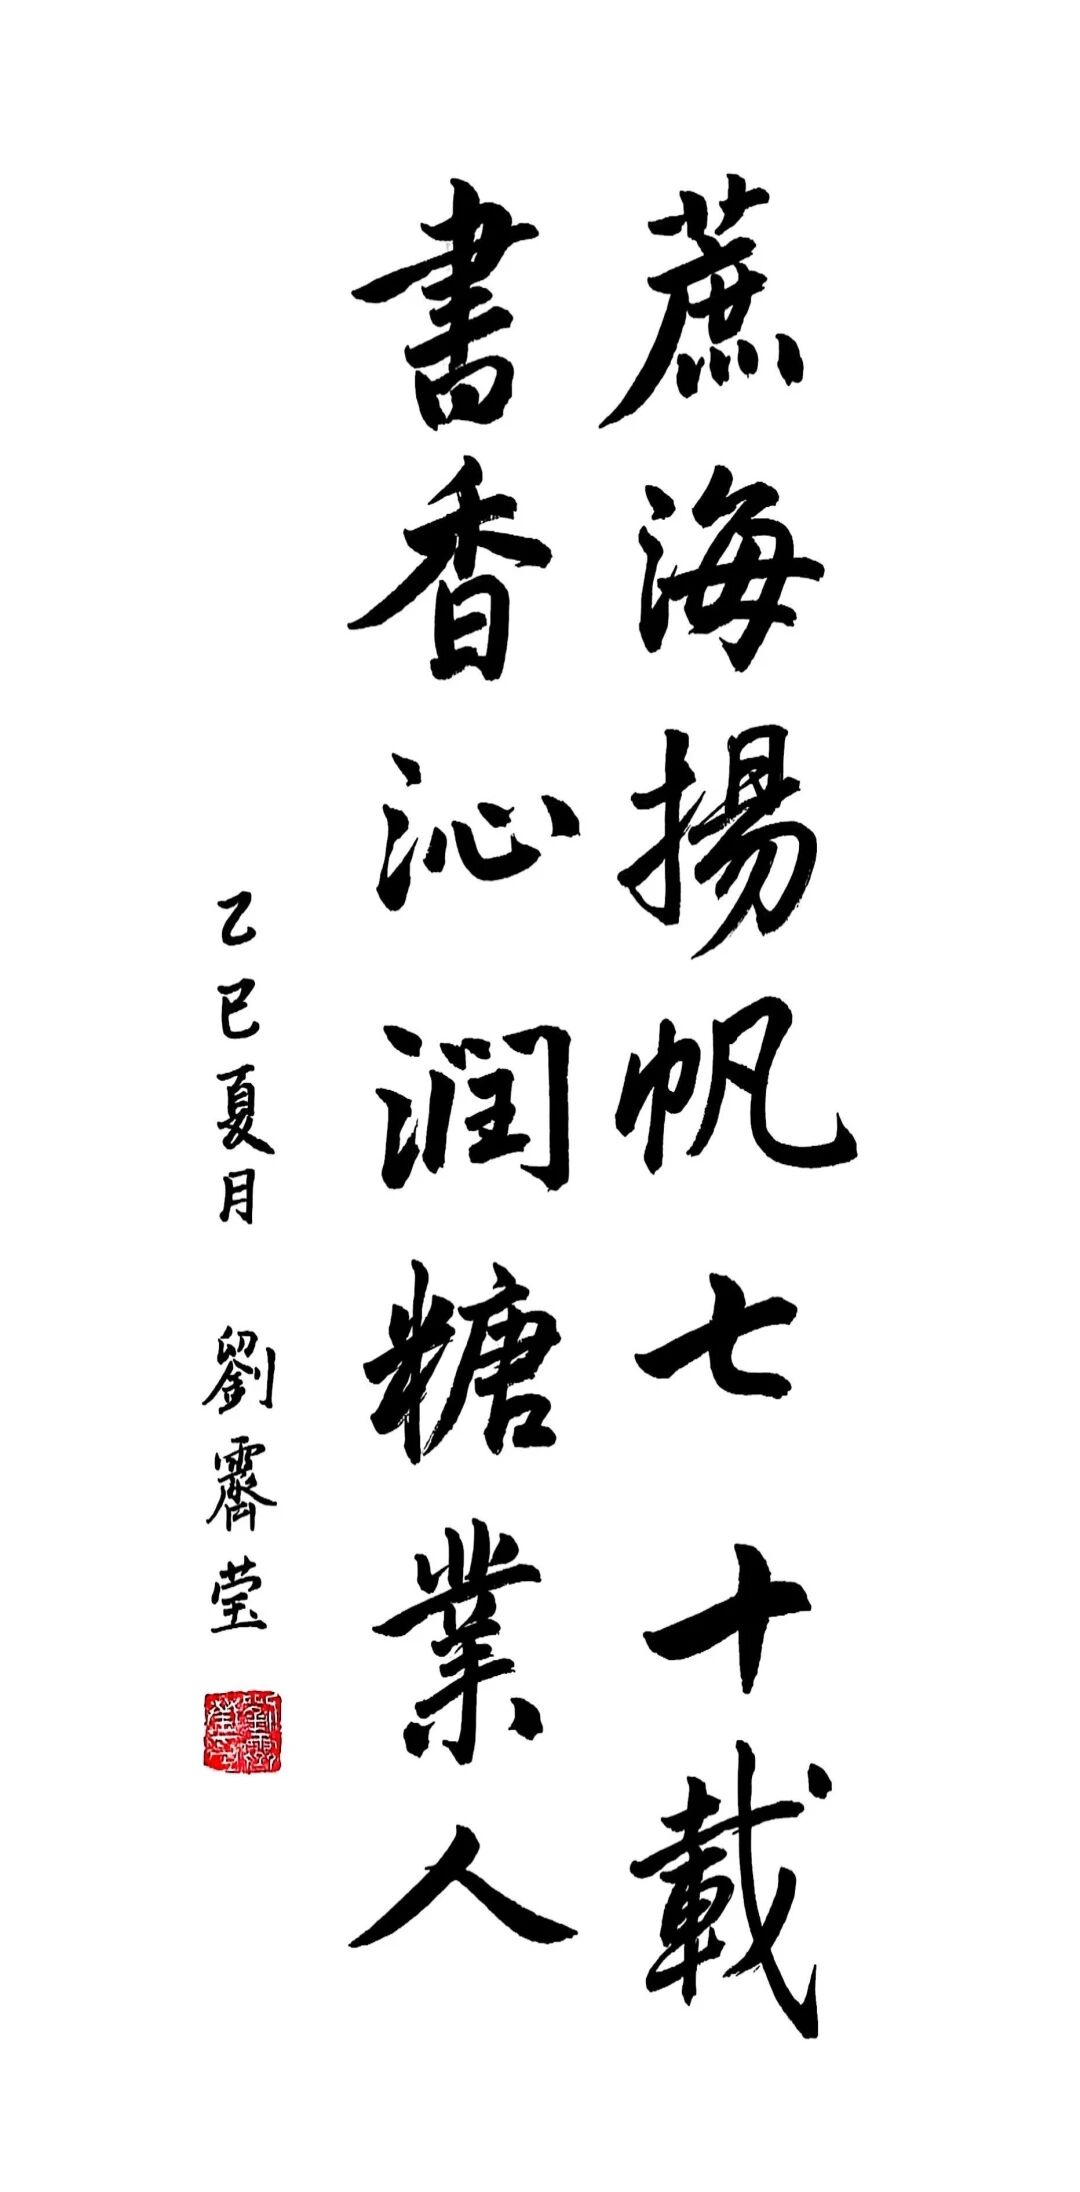 蔗海揚帆七十載
書香沁潤糖業人
乙巳夏月 劉霽莹